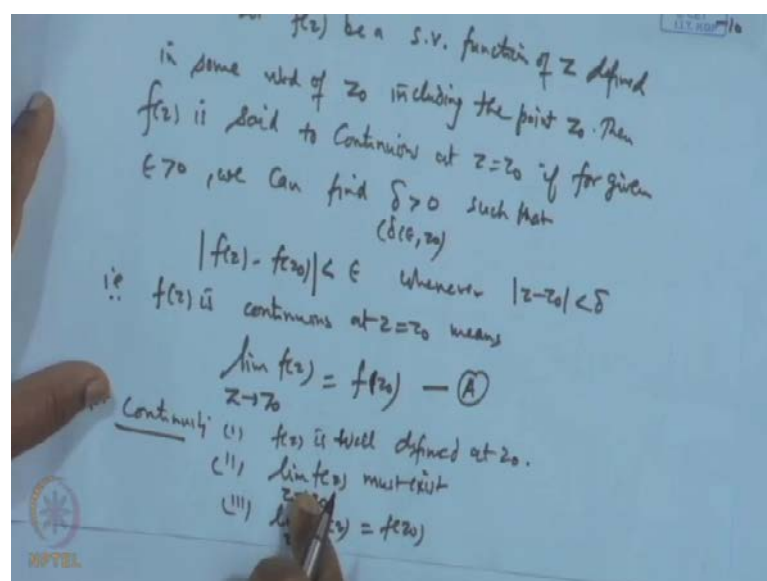 f(z) be a S.V. function of z defined
in some nbd of z₀ including the point z₀. Then
f(z) is said to Continuous at z=z₀ if for given
ϵ>0, we can find δ>0 such that
(δ(ϵ,z₀)
|f(z)-f(z₀)|<ϵ whenever |z-z₀|<δ
i.e. f(z) is continuous at z=z₀ means
lim f(z) = f(z₀) — Ⓐ
z→z₀
Continuity (i) f(z) is well defined at z₀.
(ii) lim f(z) must exist
(iii) = f(z₀)
NPTEL